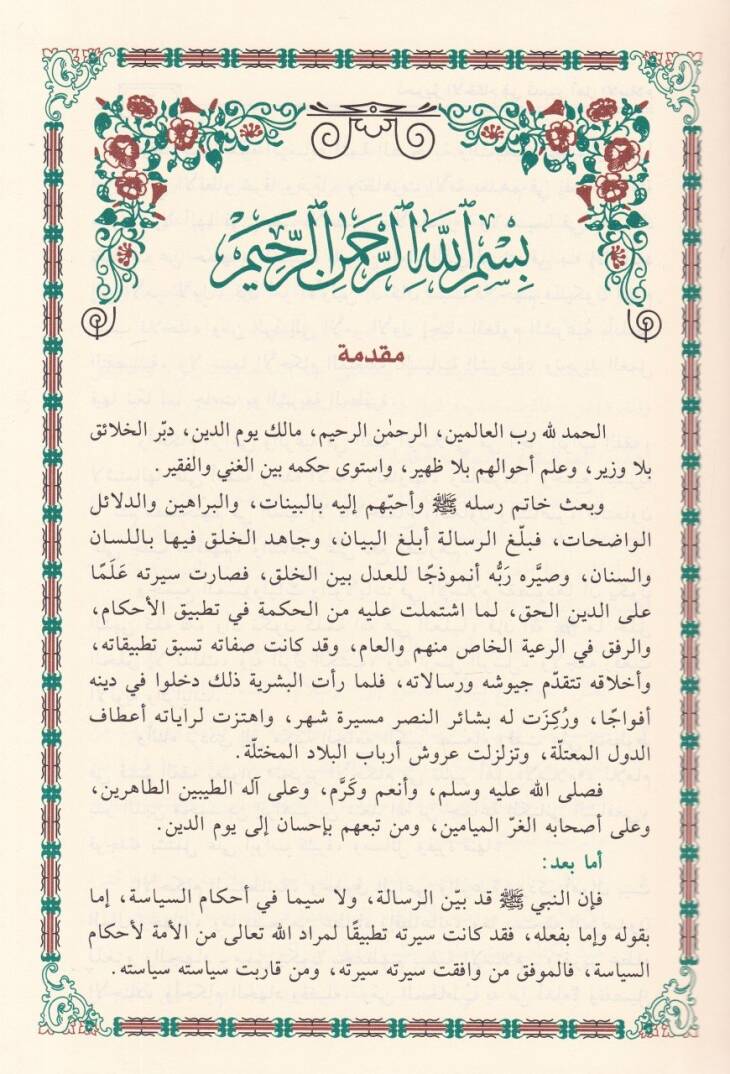 بِسْمِ ٱللَّهِ ٱلرَّحْمَٰنِ ٱلرَّحِيمِ
مقدمة
الحمد لله رب العالمين، الرحمٰن الرحيم، مالك يوم الدين، دبّر الخلائق
بلا وزير، وعلم أحوالهم بلا ظهير، واستوى حكمه بين الغني والفقير.
وبعث خاتم رسله ﷺ وأحبّهم إليه بالبينات، والبراهين والدلائل
الواضحات، فبلّغ الرسالة أبلغ البيان، وجاهد الخلق فيها باللسان
والسنان، وصيَّره رَبُّه أنموذجًا للعدل بين الخلق، فصارت سيرته عَلَمًا
على الدين الحق، لما اشتملت عليه من الحكمة في تطبيق الأحكام،
والرفق في الرعية الخاص منهم والعام، وقد كانت صفاته تسبق تطبيقاته،
وأخلاقه تتقدّم جيوشه ورسالاته، فلما رأت البشرية ذلك دخلوا في دينه
أفواجًا، ورُكِزَت له بشائر النصر مسيرة شهر، واهتزت لراياته أعطاف
الدول المعتلّة، وتزلزلت عروش أرباب البلاد المختلّة.
فصلى الله عليه وسلم، وأنعم وكَرَّم، وعلى آله الطيبين الطاهرين،
وعلى أصحابه الغرّ الميامين، ومن تبعهم بإحسان إلى يوم الدين.
أما بعد:
فإن النبي ﷺ قد بيّن الرسالة، ولا سيما في أحكام السياسة، إما
بقوله وإما بفعله، فقد كانت سيرته تطبيقًا لمراد الله تعالى من الأمة لأحكام
السياسة، فالموفق من وافقت سيرته سيرته، ومن قاربت سياسته سياسته.